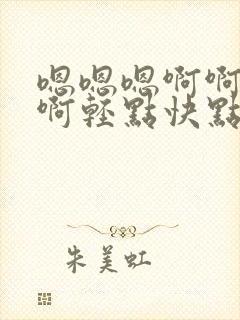 嗯嗯嗯啊啊
啊轻點快點
朱美虹